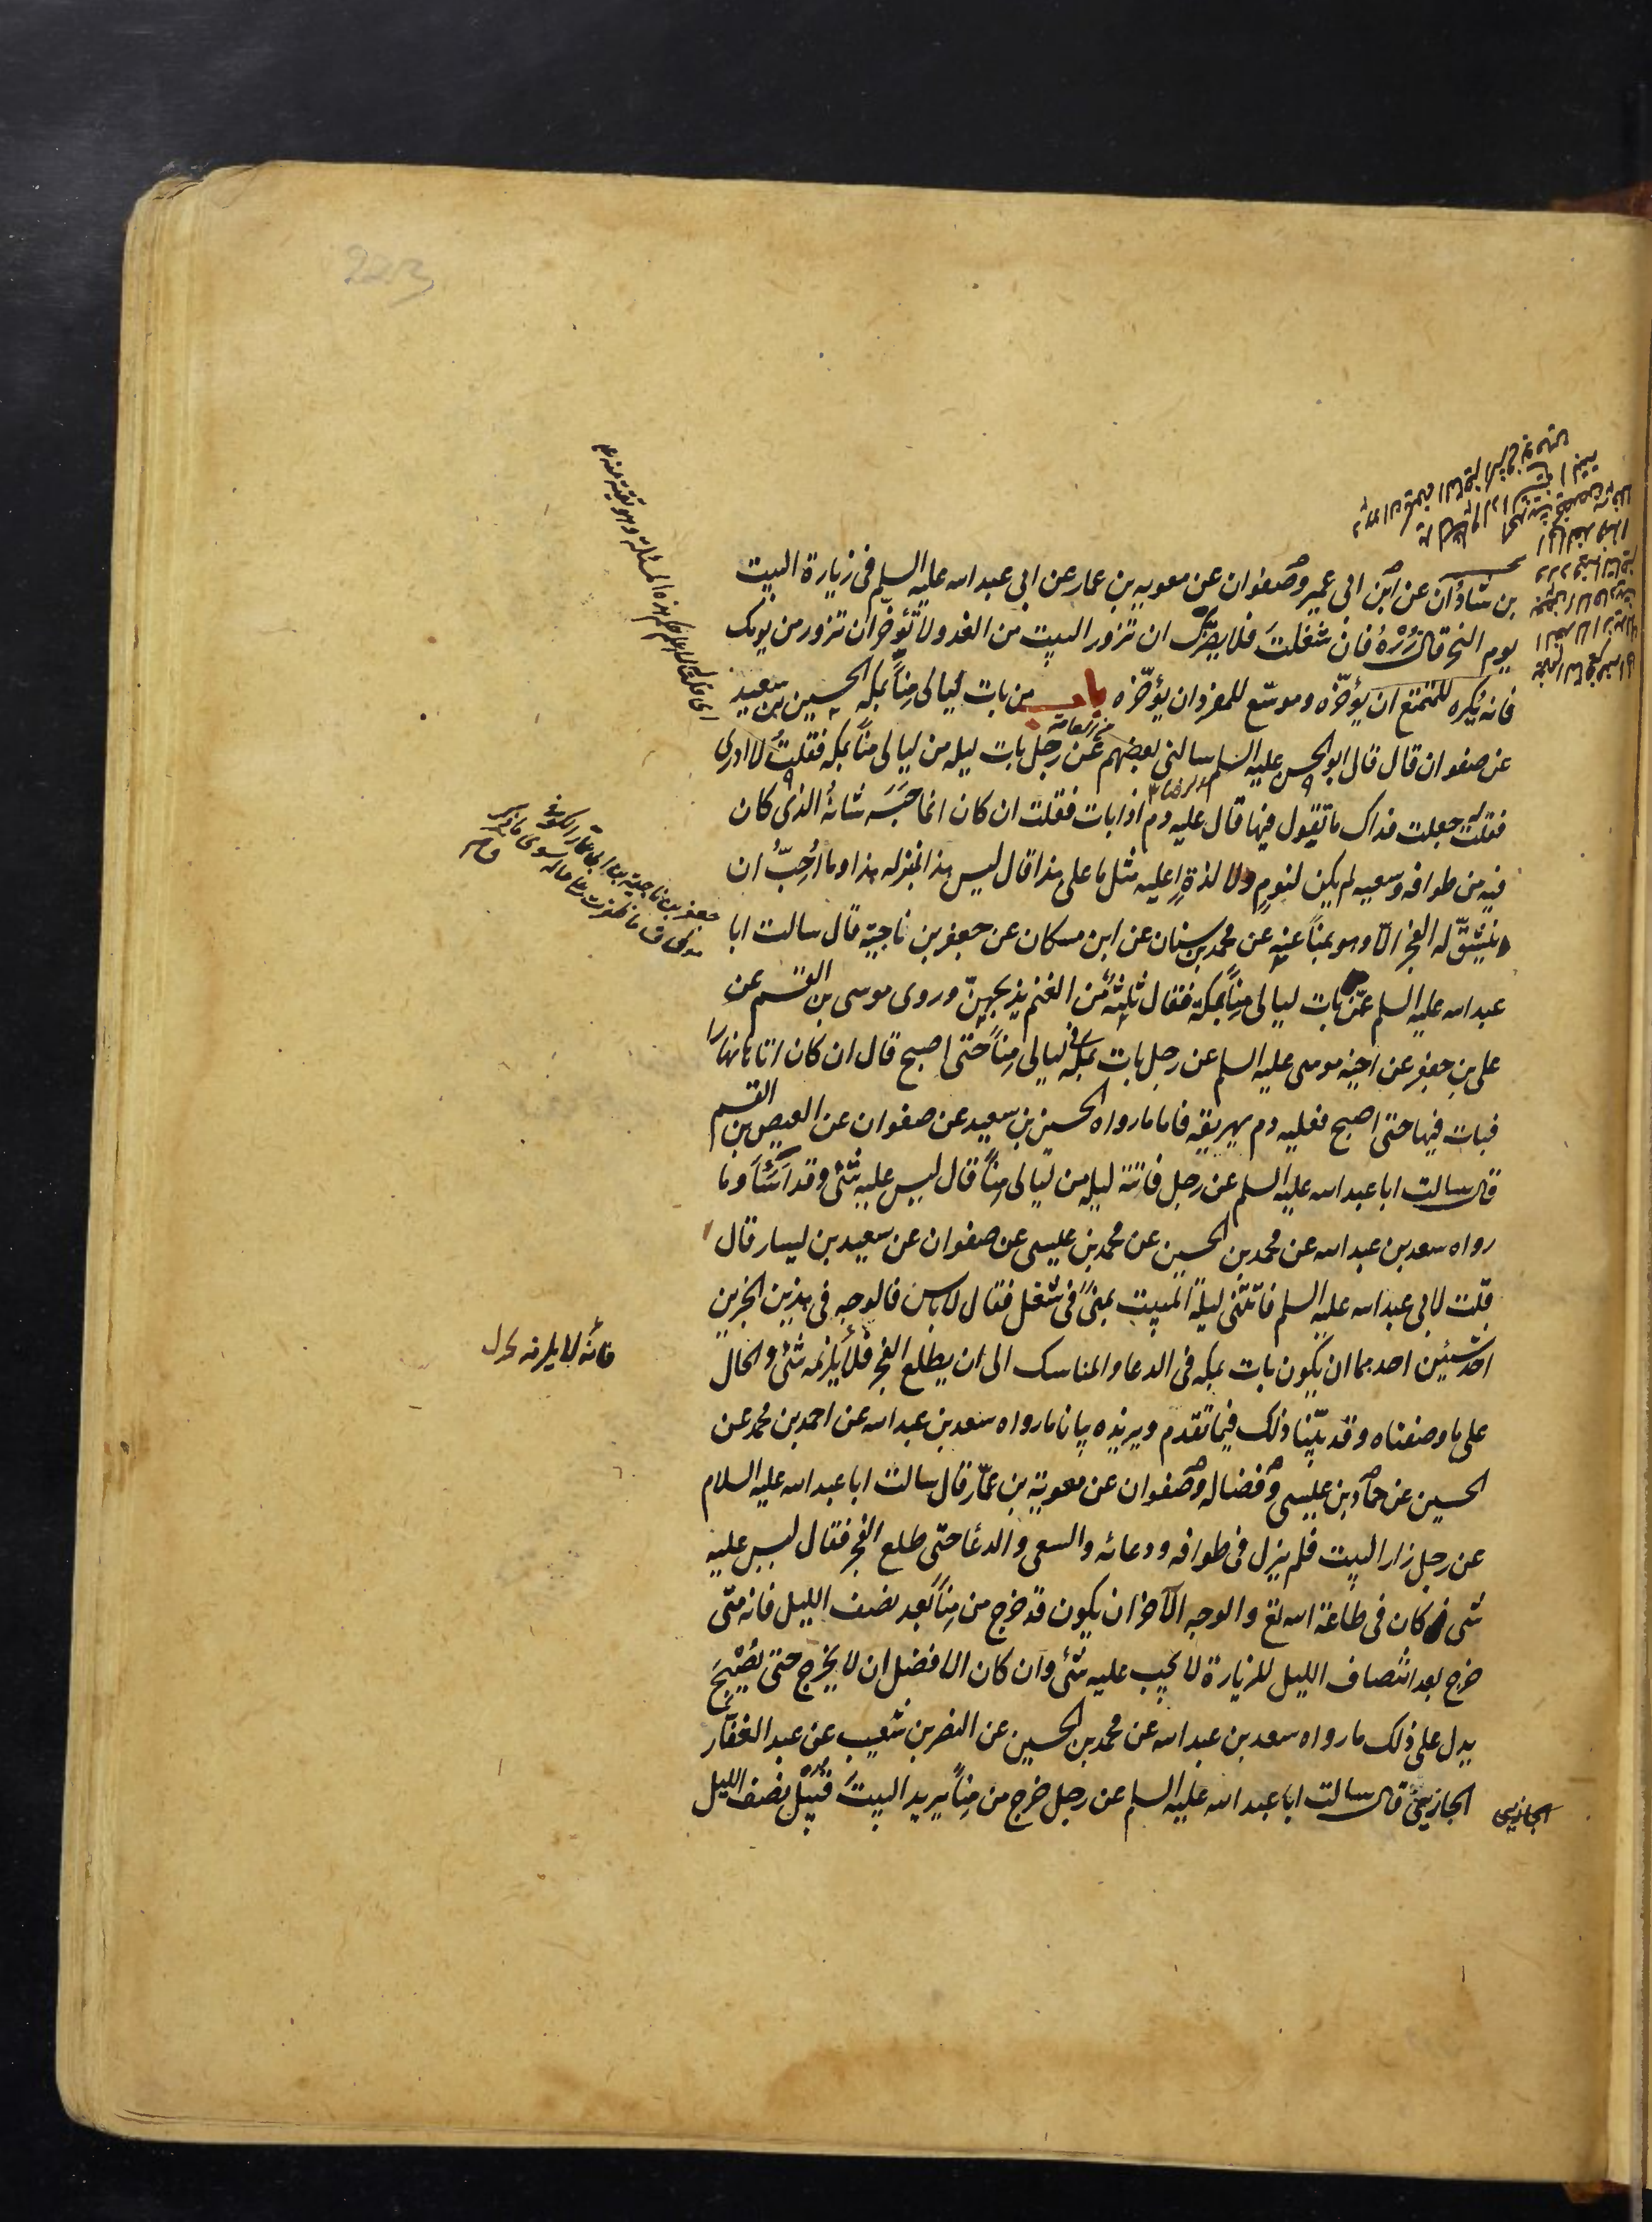 بن شاذان عن ابن ابي عمير وصفوان عن معويه بن عمار عن ابي عبد الله عليه السلم في زيارة البيت
يوم النحر قال زُرْهُ فان شغلتَ فلا يضرّك ان تزور البيت من الغد ولا تؤخّر ان تزور من يومك
فانه يكره للمتمتع ان يؤخّره وموسّع للمفرد ان يؤخّره باب من بات ليالى مِناً بمكه الحسين بن سعيد
عن صفوان قال قال ابو الحسن عليه السلم سالنى بعضهم عن رجل بات ليله من ليالى مناً بمكه فقلتُ لا ادرى
فقلت له جعلت فداك ما تقول فيها قال عليه دم اذا بات فقلت ان كان انما حبسه شانهُ الذى كان
فيه من طوافه وسعيه لم يكن لنوم ولا لذة اعليه مثل ما على هذا قال ليس هذا بمنزله هذا وما اُحِبّ ان
ينشقّ له الفجر الّا وهو بمناً عنه عن محمد بن سنان عن ابن مسكان عن جعفر بن ناجية قال سالت ابا
عبد الله عليه السلم عمّن بات ليالى مِناً بمكة فقال ثلثة من الغنم يذبحهنّ وروى موسى بن القسم عن
على بن جعفر عن اخيه موسى عليه السلم عن رجل بات بمكه في ليالى مِناً حتى اصبح قال ان كان اتاها نهارا
فبات فيها حتى اصبح فعليه دم يهريقه فاما ما رواه الحسين بن سعيد عن صفوان عن العيص بن القسم
قال سالت ابا عبد الله عليه السلم عن رجل فاتته ليله من ليالى مِناً قال ليس عليه شئ وقد اَسَاَ وما
رواه سعد بن عبد الله عن محمد بن الحسين عن محمد بن عليسى عن صفوان عن سعيد بن يسار قال
قلت لابي عبد الله عليه السلم فاتتنى ليلة المبيت بمنىً في شغل فقال لا باس فالوجه في هذين الخبرين
احد شيئين احدهما ان يكون بات بمكه في الدعا والمناسك الى ان يطلع الفجر فلا يلزمه شئ والحال
على ما وصفناه وقد بيّنّا ذلك فيما تقدم ويزيده بيانا ما رواه سعد بن عبد الله عن احمد بن محمد عن
الحسين عن حماد بن عليسى وفضاله وصفوان عن معوية بن عمّار قال سالت ابا عبد الله عليه السلام
عن رجل زار البيت فلم يزل في طوافه ودعائه والسعى والدعا حتى طلع الفجر فقال ليس عليه
شى كان في طاعة الله تع والوجه الآخر ان يكون قد خرج من مِناً بعد نصف الليل فانه متى
خرج بعد انتصاف الليل للزيارة لا يجب عليه شئ وان كان الافضل ان لا يخرج حتى يصْبِحَ
يدل على ذلك ما رواه سعد بن عبد الله عن محمد بن الحسين عن النضر بن شعيب عن عبد الغفار
الجازيىّ قال سالت ابا عبد الله عليه السلم عن رجل خرج من مِناً يريد البيتَ قبيل نصف الليل
من العامة
فانّه لا يلزمه
الجازيى
223